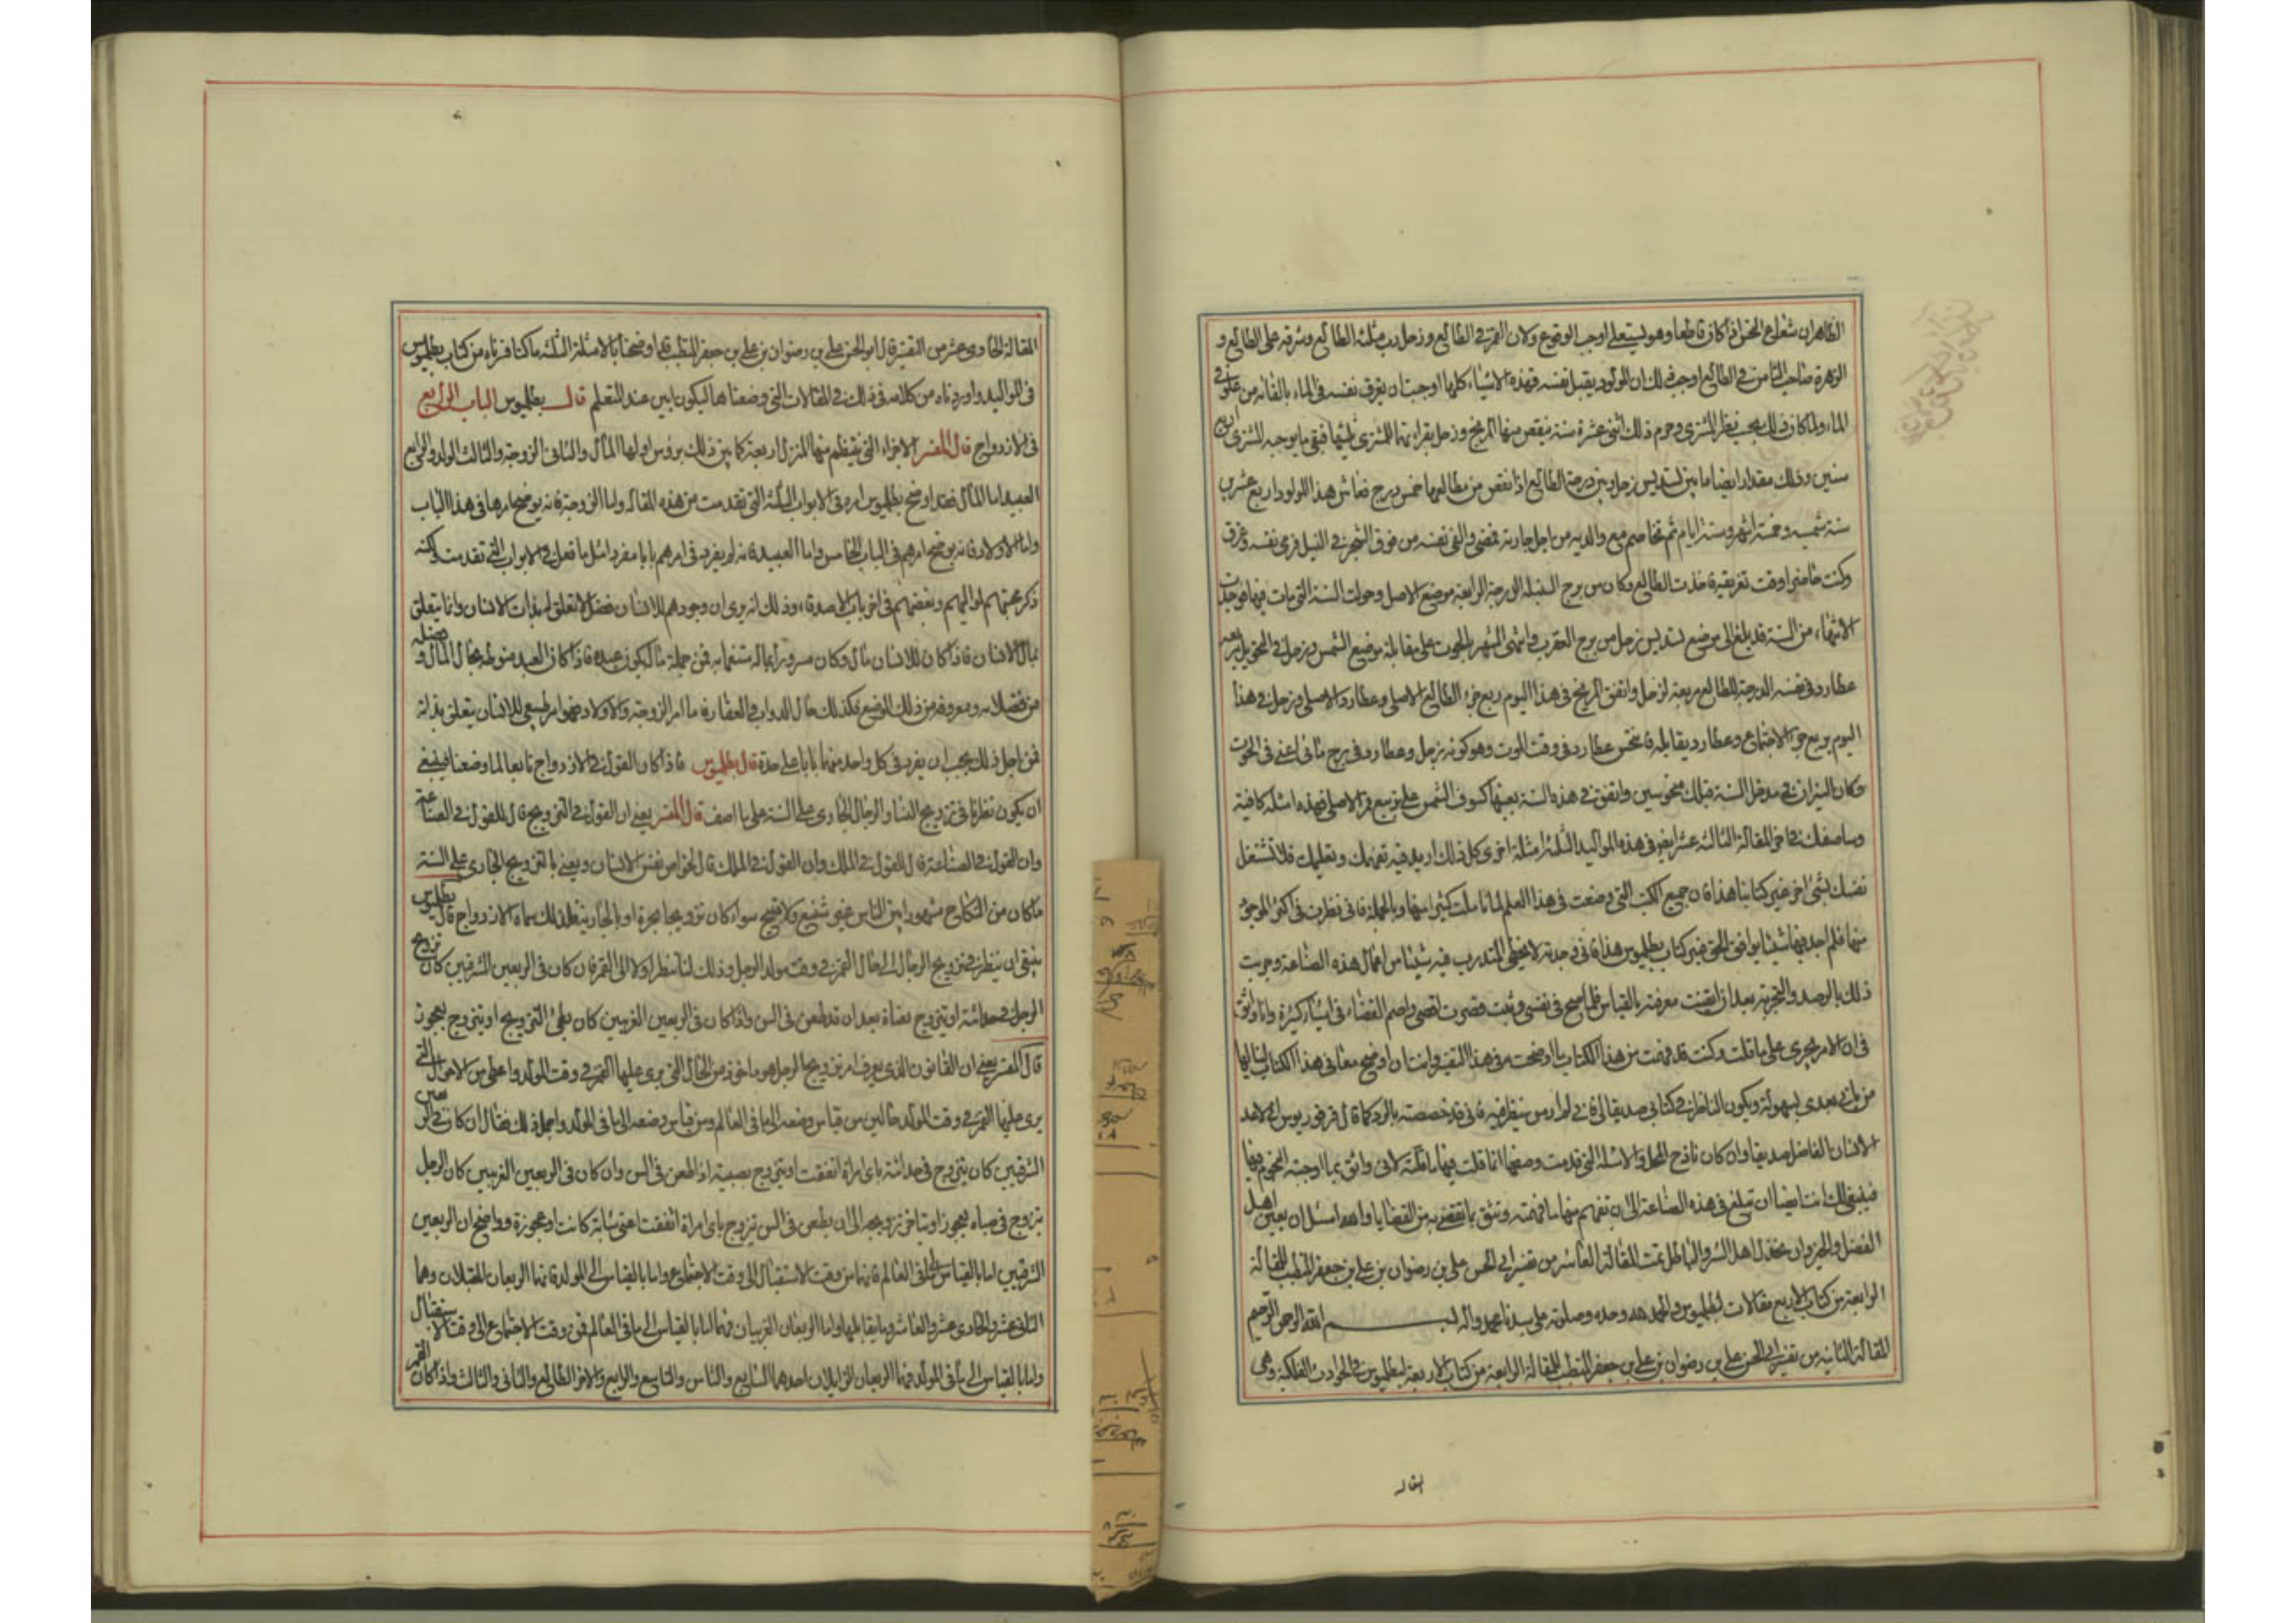 الظاهر ان شعاع المحترق اذا كان قاطعا وهو ليستعلي اوجب الوقوع ولان القمر في الطالع وزحل رب مثلثة الطالع ومشرف على الطالع و
الزهرة صاحب الثامن في الطالع اوجب ذلك ان المولود يقتل نفسه فهذه الاشياء كلها اوجبت ان يغرق نفسه في الماء بالقائه من علو في
الماء ولما كان ذلك يجب نظر المشتري وجرم ذلك اثنى عشرة سنة ينقص منها المريخ وزحل بقرانهما للمشتري ثلثيها فبقي ما يوجبه المشتري اربع
سنين وذلك مقدار ايضا ما بين تسديس زحل وبين درجة الطالع اذا نقص من مطالعها خمس درج فعاش هذا المولود اربع عشرين
سنة شمسية وخمسة اشهر وستة ايام ثم تخاصم مع والديه من اجل جارية فمضى والقى نفسه من فوق الشجر في النيل فرمى نفسه وغرق
وكنت حاضرا وقت تغريقه فاخذت الطالع وكان من برج السنبلة الدرجة الرابعة موضع الاصل وحولت السنة التي مات فيها فوجدت
الانتهاء من السنة قد بلغ الى موضع تسديس زحل من برج العقرب وانتهى الشهر الى الحوت على مقابلة موضع الشمس وزحل في التحويل
عطارد وفي نفسه الدرجة الطالع مربعة لزحل واتفق المريخ في هذا اليوم ربع جزء الطالع الاصلي وعطارد الاصلي وزحل في هذا
اليوم يربع جزء الاجتماع وعطارد يقابله فانتحس عطارد في وقت الموت وهو كونه بزحل وعطارد في برج مائي اعني في الحوت
وكان النيران في مدخل السنة هنالك منحوسين واتفق في هذه السنة بعينها كسوف الشمس على تربيع قمر الاصلي فهذه امثلة كافية
وساصف لك في اخر المقالة الثالثة عشر ايضا في هذه المواليد الثلثة امثلة اخرى كل ذلك اريد فيه تفهيمك وتعليمك فلا تشتغل
نفسك بشئ اخر غير كتابنا هذا فان جميع الكتب التي وضعت في هذا العلم لما تاملت كثيرا منها وبالجملة فاني نظرت في اكثر الموجود
منها فلم اجد فيها شيئا يوافق الحق غير كتاب بطلميوس هذا فاني وجدته لا يخطي المتدرب فيه شيئا من اعمال هذه الصناعة وجربت
ذلك بالرصد والتجربة بعد ان ايقنت معرفته بالقياس فلما صح في نفسي وثبت فصرت اقضي واصم القضاء في اشياء كثيرة وانا واثق
في ان الامر يجري على ما قلت وكنت قد فهمت من هذا الكتاب ما اوضحت في هذا التفسير وانت ان اوضح معاني هذا الكتاب لينالها
من ياتي بعدي بسهولة ويكون الناظر في كتابي صديقا لي فاني لم ارد من ينظر فيه فاني قد خصصته بالرد كما قال فرفوريوس الى لاحد
الانسان الفاضل صديقا وان كان نازح المحل والامثلة التي تقدمت وصفها انما قلت فيها ما قلته لاني واثق بما اوجبته النجوم فيها
فينبغي لك انت ايضا ان تبلغ في هذه الصناعة الى ان تفهم منها ما فهمته وتثق بما تقضي به من القضايا والله اسئل ان يعين اهل
الفضل والخير وان يخذل اهل الشر والباطل تمت المقالة العاشرة من تفسير ابي الحسن علي بن رضوان بن علي بن جعفر المتطبب للمقالة
الرابعة من كتاب الاربع مقالات لبطلميوس والحمد لله وحده وصلوته على سيدنا محمد واله بسم الله الرحمن الرحيم
المقالة الثانية من تفسير ابي الحسن علي بن رضوان بن علي بن جعفر المتطبب للمقالة الرابعة من كتاب الاربعة لبطلميوس في الحوادث الفلكية وهي
المقالة
المقالة الحادي عشر من التفسير قال ابو الحسن علي بن رضوان بن علي بن جعفر المتطبب قد اوضحنا بالامثلة الثلثة ما كنا قرناه من كتاب بطلميوس
في المواليد واوردناه من كلامه في ذلك في المقالات التي وضعناها ليكون ابين عند التعلم قال بطلميوس الباب الرابع
في الازدواج قال المفسر الاجزاء التي ينتظم منها المنزل اربعة كما بين ذلك بروسن اولها المال والثاني الزوجة والثالث الولد والرابع
العبيد اما المال فقد اوضح بطلميوس امره في الابواب الثلثة التي تقدمت من هذه المقالة واما الزوجة فانه يوضح امرها في هذا الباب
واما الاولاد فانه يوضح امرهم في الباب الخامس واما العبيد فانه لم يفرد في امرهم بابا مفردا مثل ما فعل في الابواب التي تقدمت لكنه
ذكر محبتهم لمواليهم وبغضهم في اخر باب الاصدقاء وذلك انه يرى ان وجودهم للانسان فضل لا تتعلق بذات الانسان وانما يتعلق
بمال الانسان فاذا كان للانسان مال وكان مسرورا بماله مستتما به فمن جملة ماله يكون عبيده فاذا كان العبيد منوطة بحال المال و فضله
من فضلاته ومعروفة من ذلك الموضع فكذلك حال الدواب والعقار فاما امر الزوجة والاولاد فهو امر طبيعي للانسان يتعلق بذاته
فمن اجل ذلك يجب ان يفرد في كل واحد منهما بابا على حدة قال بطلميوس فاذا كان القول في الازدواج تابعا لما وضعنا فينبغي
ان يكون نظرنا في تزويج النساء والرجال الجاري على السنة على ما اصف قال المفسر يعني ان القول في التزويج تال للقول في الصناعة
وان القول في الصناعة تال للقول في الملك وان القول في الملك تال لخواص نفس الانسان ويعني بالتزويج الجاري على السنة
ما كان من النكاح مشهورا بين الناس غير شنيع ولا قبيح سواء كان تزويجا بحرة او بالجارية فلذلك سماه الازدواج قال بطلميوس
ينبغي ان ينظر في تزويج الرجال الى حال القمر في وقت مولد الرجل وذلك لنا ننظر اولا الى القمر فان كان في الربعين الشرقيين كان تزوج
الرجل في حداثته او يتزوج بفتاة بعد ان قد طعن في السن واذا كان في الربعين الغربيين كان بطئ التزويج او يتزوج بعجوز
قال المفسر يعني ان القانون الذي يعرف امر تزويج الرجل هو ماخوذ من الحال التي يرى عليها القمر في وقت المولد واعلم من الاحوال التي
يرى عليها القمر في وقت المولد حالين من قياس وضعه الى ما في العالم ومن قياس وضعه الى ما في المولد واجمل ذلك فقال ان كان في الربعين
الشرقيين كان يتزوج في حداثته باي امراة اتفقت او يتزوج بصبية اذا طعن في السن وان كان في الربعين الغربيين كان الرجل
يتزوج في صباه بعجوز او يتاخر تزويجه الى ان يطعن في السن يتزوج باي امراة اتفقت اعني شابة كانت او عجوزة وواضح ان الربعين
الشرقيين اما بالقياس الى ما في العالم فانهما من وقت الاستقبال الى وقت الاجتماع واما بالقياس الى المولد فانهما الربعان المقبلان وهما
الثاني عشر والحادي عشر والعاشر وما يقابلها واما الربعان الغربيان فهما اما بالقياس الى ما في العالم فمن وقت الاجتماع الى وقت الاستقبال
واما بالقياس الى ما في المولد فهما الربعان الزايلان احدهما السابع والثامن والتاسع والرابع والاخر الطالع والثاني والثالث واذا كان القمر